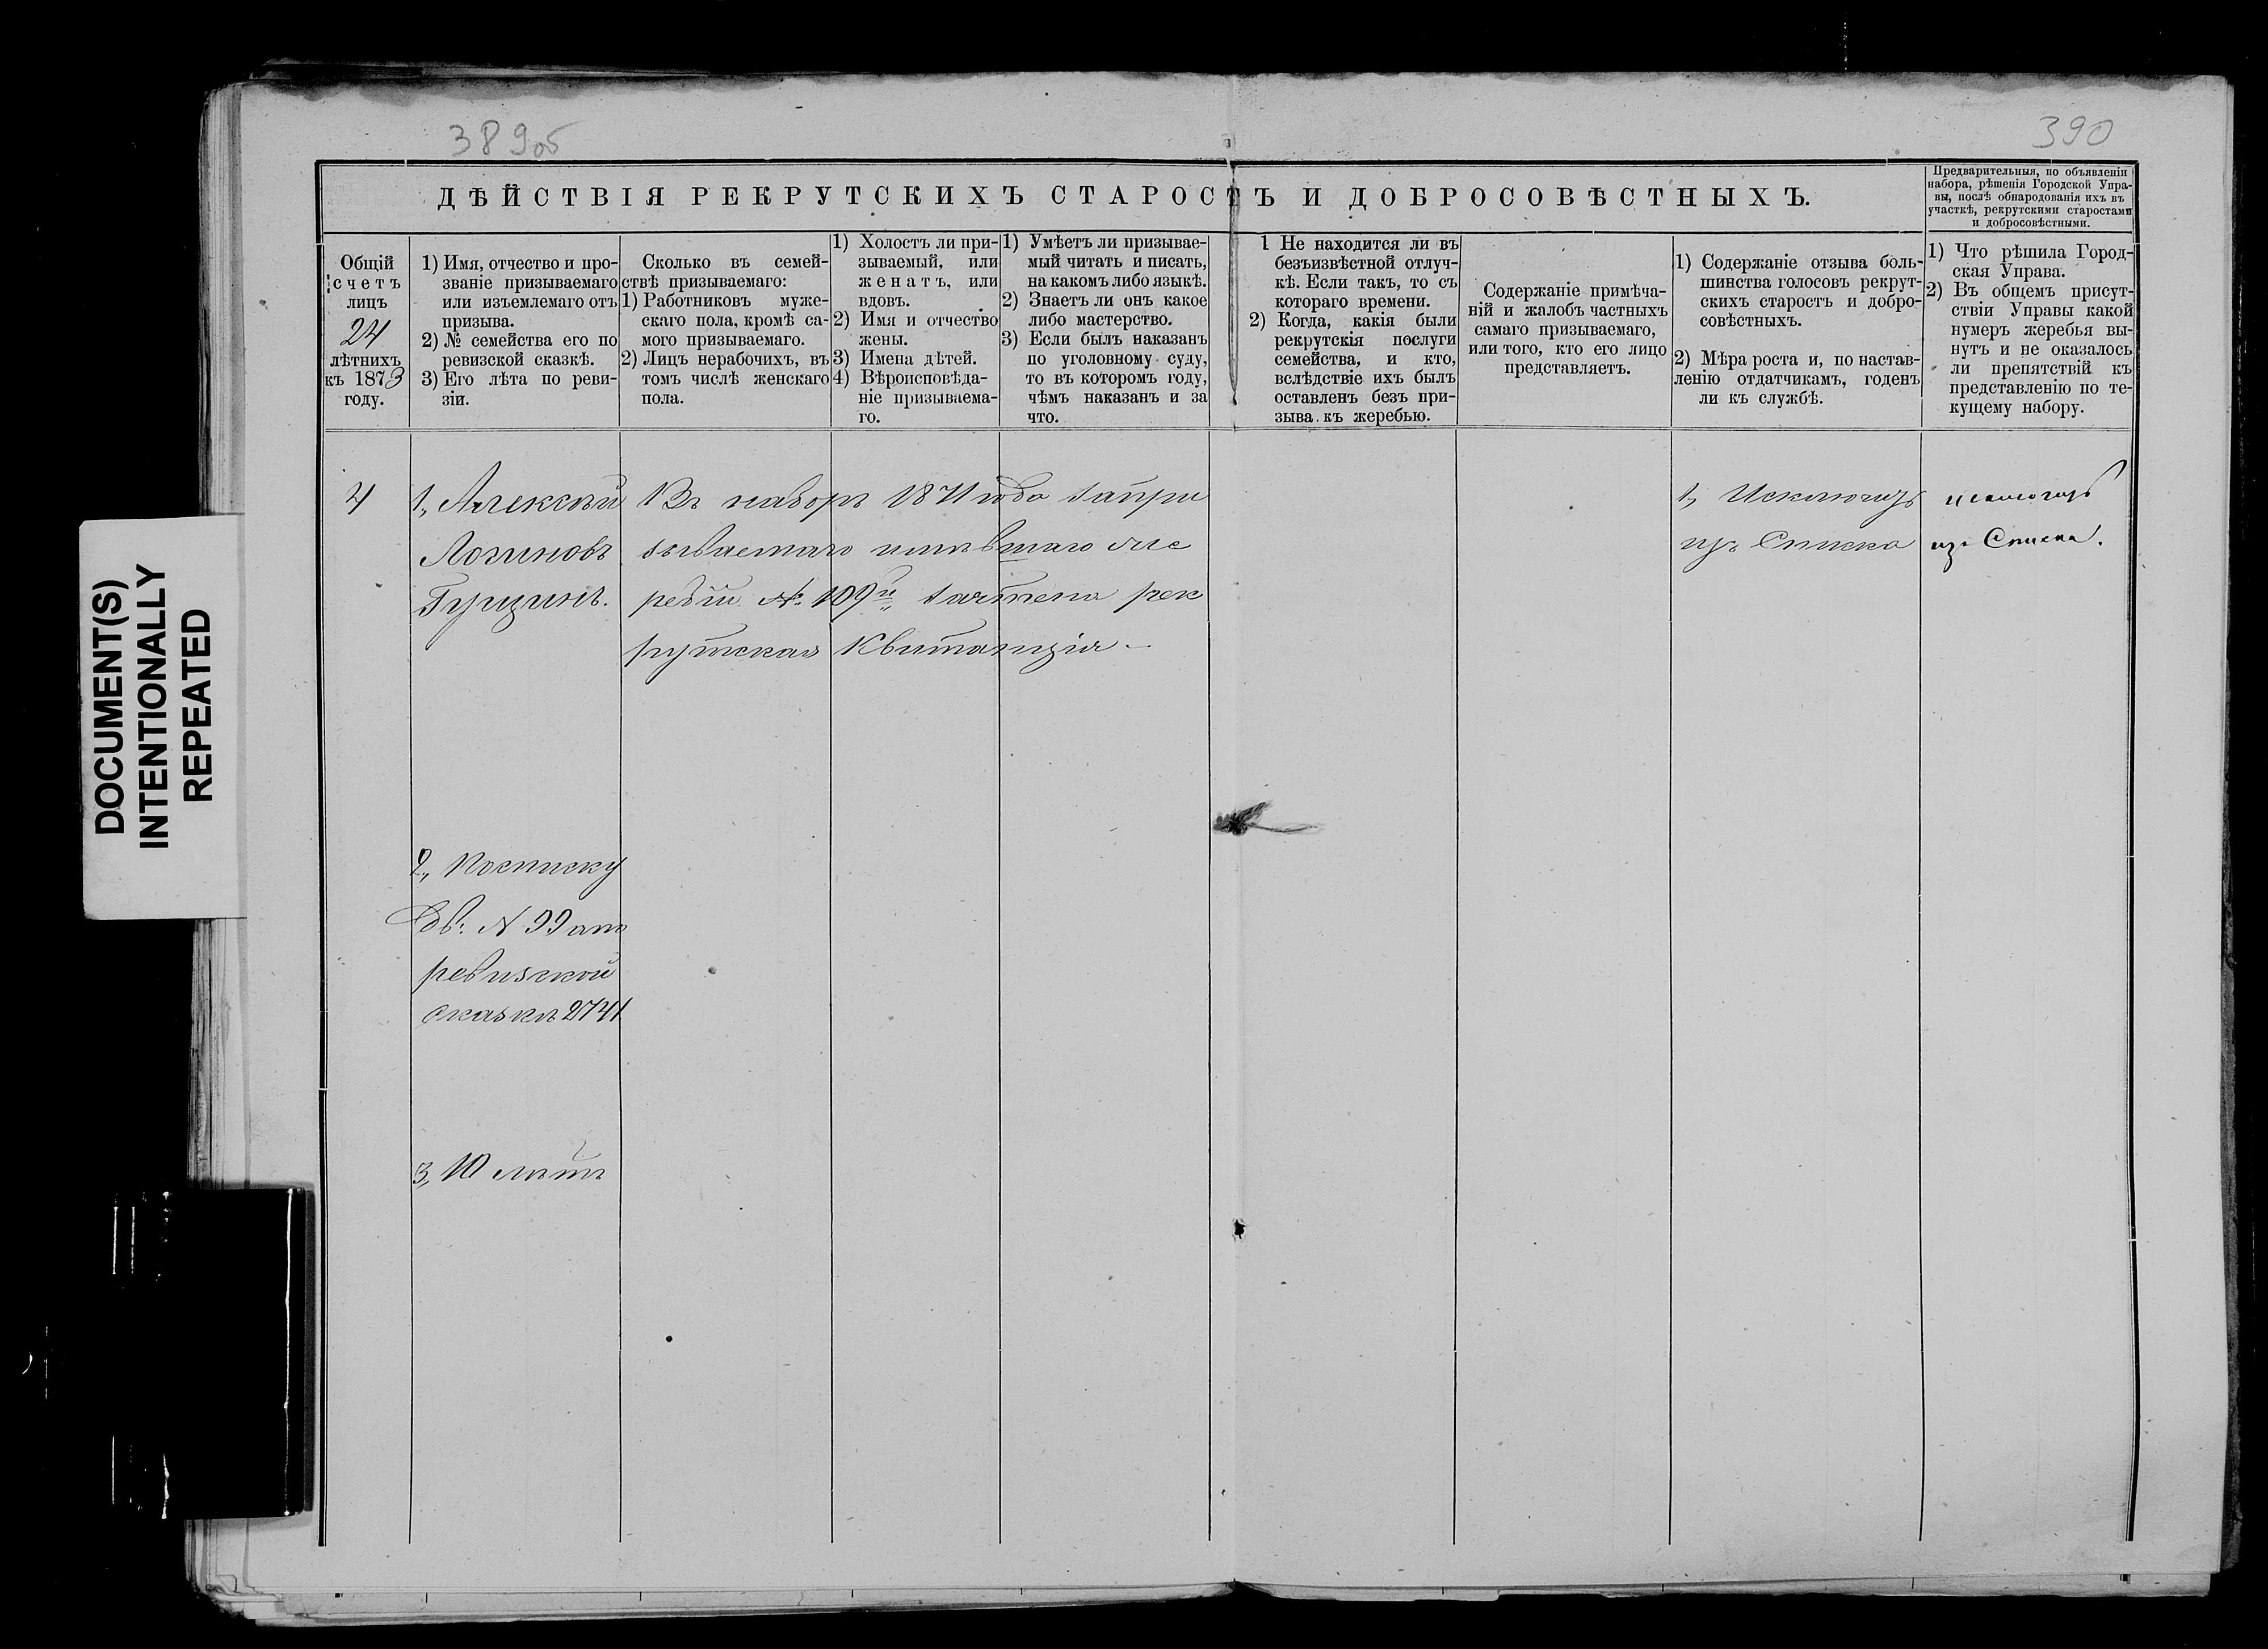 389об
390
ДѢЙСТВІЯ РЕКРУТСКИХЪ СТАРОСТЪ И ДОБРОСОВѢСТНЫХЪ.
Предварительныя, по объявленіи
набора, рѣшенія Городской Упра-
вы, послѣ обнародованія ихъ въ
участкѣ, рекрутскими старостами
и добросовѣстными.
Общій
счетъ
лицъ
24
лѣтнихъ
къ 1873
году.
1) Имя, отчество и про-
званіе призываемаго
или изъемлемаго отъ
призыва.
2) № семейства его по
ревизской сказкѣ.
3) Его лѣта по реви-
зіи.
Сколько въ семей-
ствѣ призываемаго:
1) Работниковъ муже-
скаго пола, кромѣ са-
мого призываемаго.
2) Лицъ нерабочихъ, въ
томъ числѣ женскаго
пола.
1) Холостъ ли при-
зываемый, или
женатъ, или
вдовъ.
2) Имя и отчество
жены.
3) Имена дѣтей.
4) Вѣроисповѣда-
ніе призываема-
го.
1) Умѣетъ ли призывае-
мый читать и писать,
на какомъ либо языкѣ.
2) Знаетъ ли онъ какое
либо мастерство.
3) Если былъ наказанъ
по уголовному суду,
то въ которомъ году,
чѣмъ наказанъ и за
что.
1 Не находится ли въ
безъизвѣстной отлуч-
кѣ. Если такъ, то съ
котораго времени.
2) Когда, какія были
рекрутскія послуги
семейства, и кто,
вслѣдствіе ихъ былъ
оставленъ безъ при-
зыва къ жеребью.
Содержаніе примѣча-
ній и жалобъ частныхъ
самаго призываемаго,
или того, кто его лицо
представляетъ.
1) Содержаніе отзыва боль-
шинства голосовъ рекрут-
скихъ старостъ и добро-
совѣстныхъ.
2) Мѣра роста и, по настав-
ленію отдатчикамъ, годенъ
ли къ службѣ.
1) Что рѣшила Город-
ская Управа.
2) Въ общемъ присут-
ствіи Управы какой
нумеръ жеребья вы-
нутъ и не оказалось
ли препятствій къ
представленію по те-
кущему набору.
4
1, Алексѣй
Логиновъ
Гущинъ.
Въ наборъ 1871 года запри
зываемаго имѣвшаго же
ребій № 109й зачтена рек
рутская Квитанція
1, Исключить
изъ Списка
исключить
изъ Списка.
2, Посписку
№ 99 апо
ревизской
сказкѣ 2741
3, 10 лѣтъ
DOCUMENT(S)
INTENTIONALLY
REPEATED